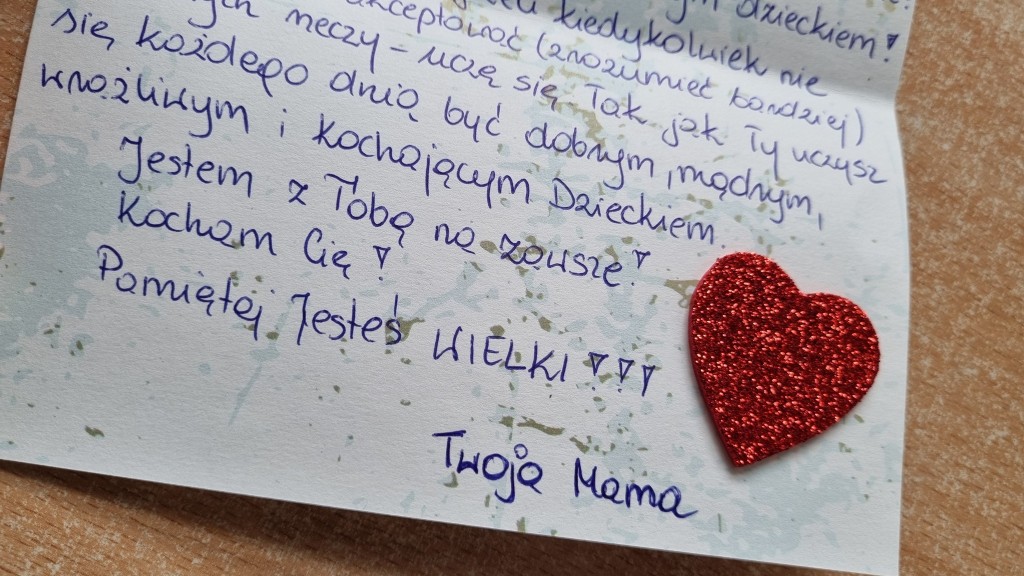 dzieckiem!
kiedykolwiek nie
akceptować (zrozumieć bardziej)
rzeczy - uczę się Tak jak Ty uczysz
się każdego dnia być dobrym, mądrym,
wrażliwym i kochającym Dzieckiem.
Jestem z Tobą na zawsze!
Kocham Cię!
Pamiętaj Jesteś WIELKI!!!
Twoja Mama